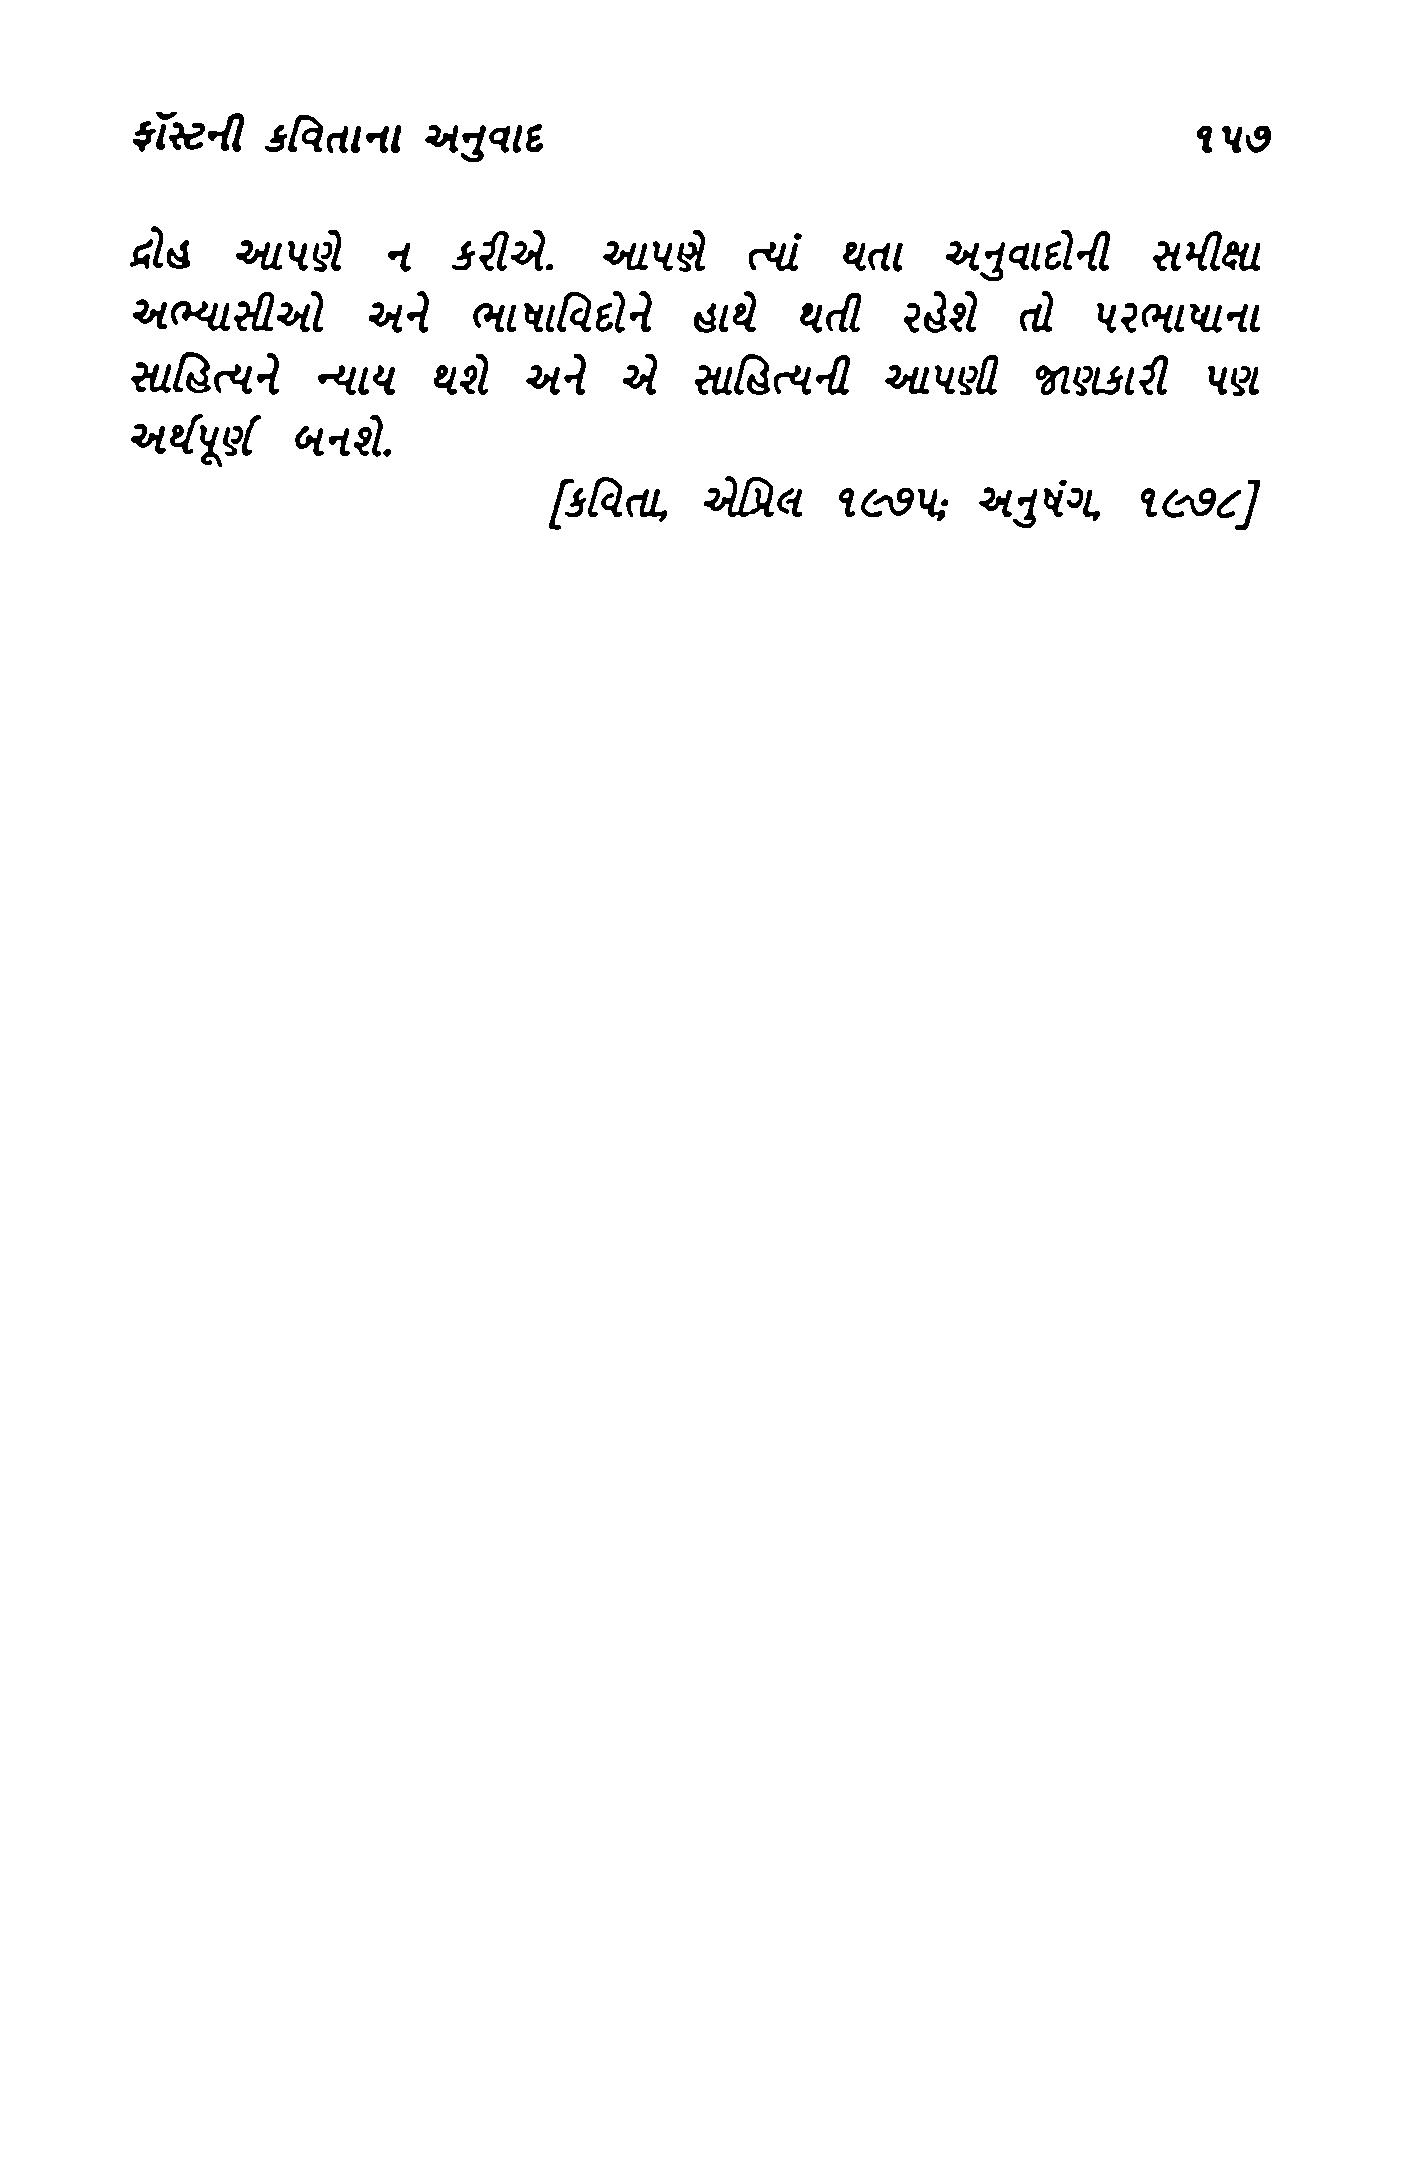 ફૉસ્ટની કવિતાના અનુવાદ ૧૫૭
દ્રોહ આપણે ન કરીએ. આપણે ત્યાં થતા અનુવાદોની સમીક્ષા
અભ્યાસીઓ અને ભાષાવિદોને હાથે થતી રહેશે તો પરભાષાના
સાહિત્યને ન્યાય થશે અને એ સાહિત્યની આપણી જાણકારી પણ
અર્થપૂર્ણ બનશે.
[કવિતા, એપ્રિલ ૧૯૭૫; અનુષંગ, ૧૯૭૮]